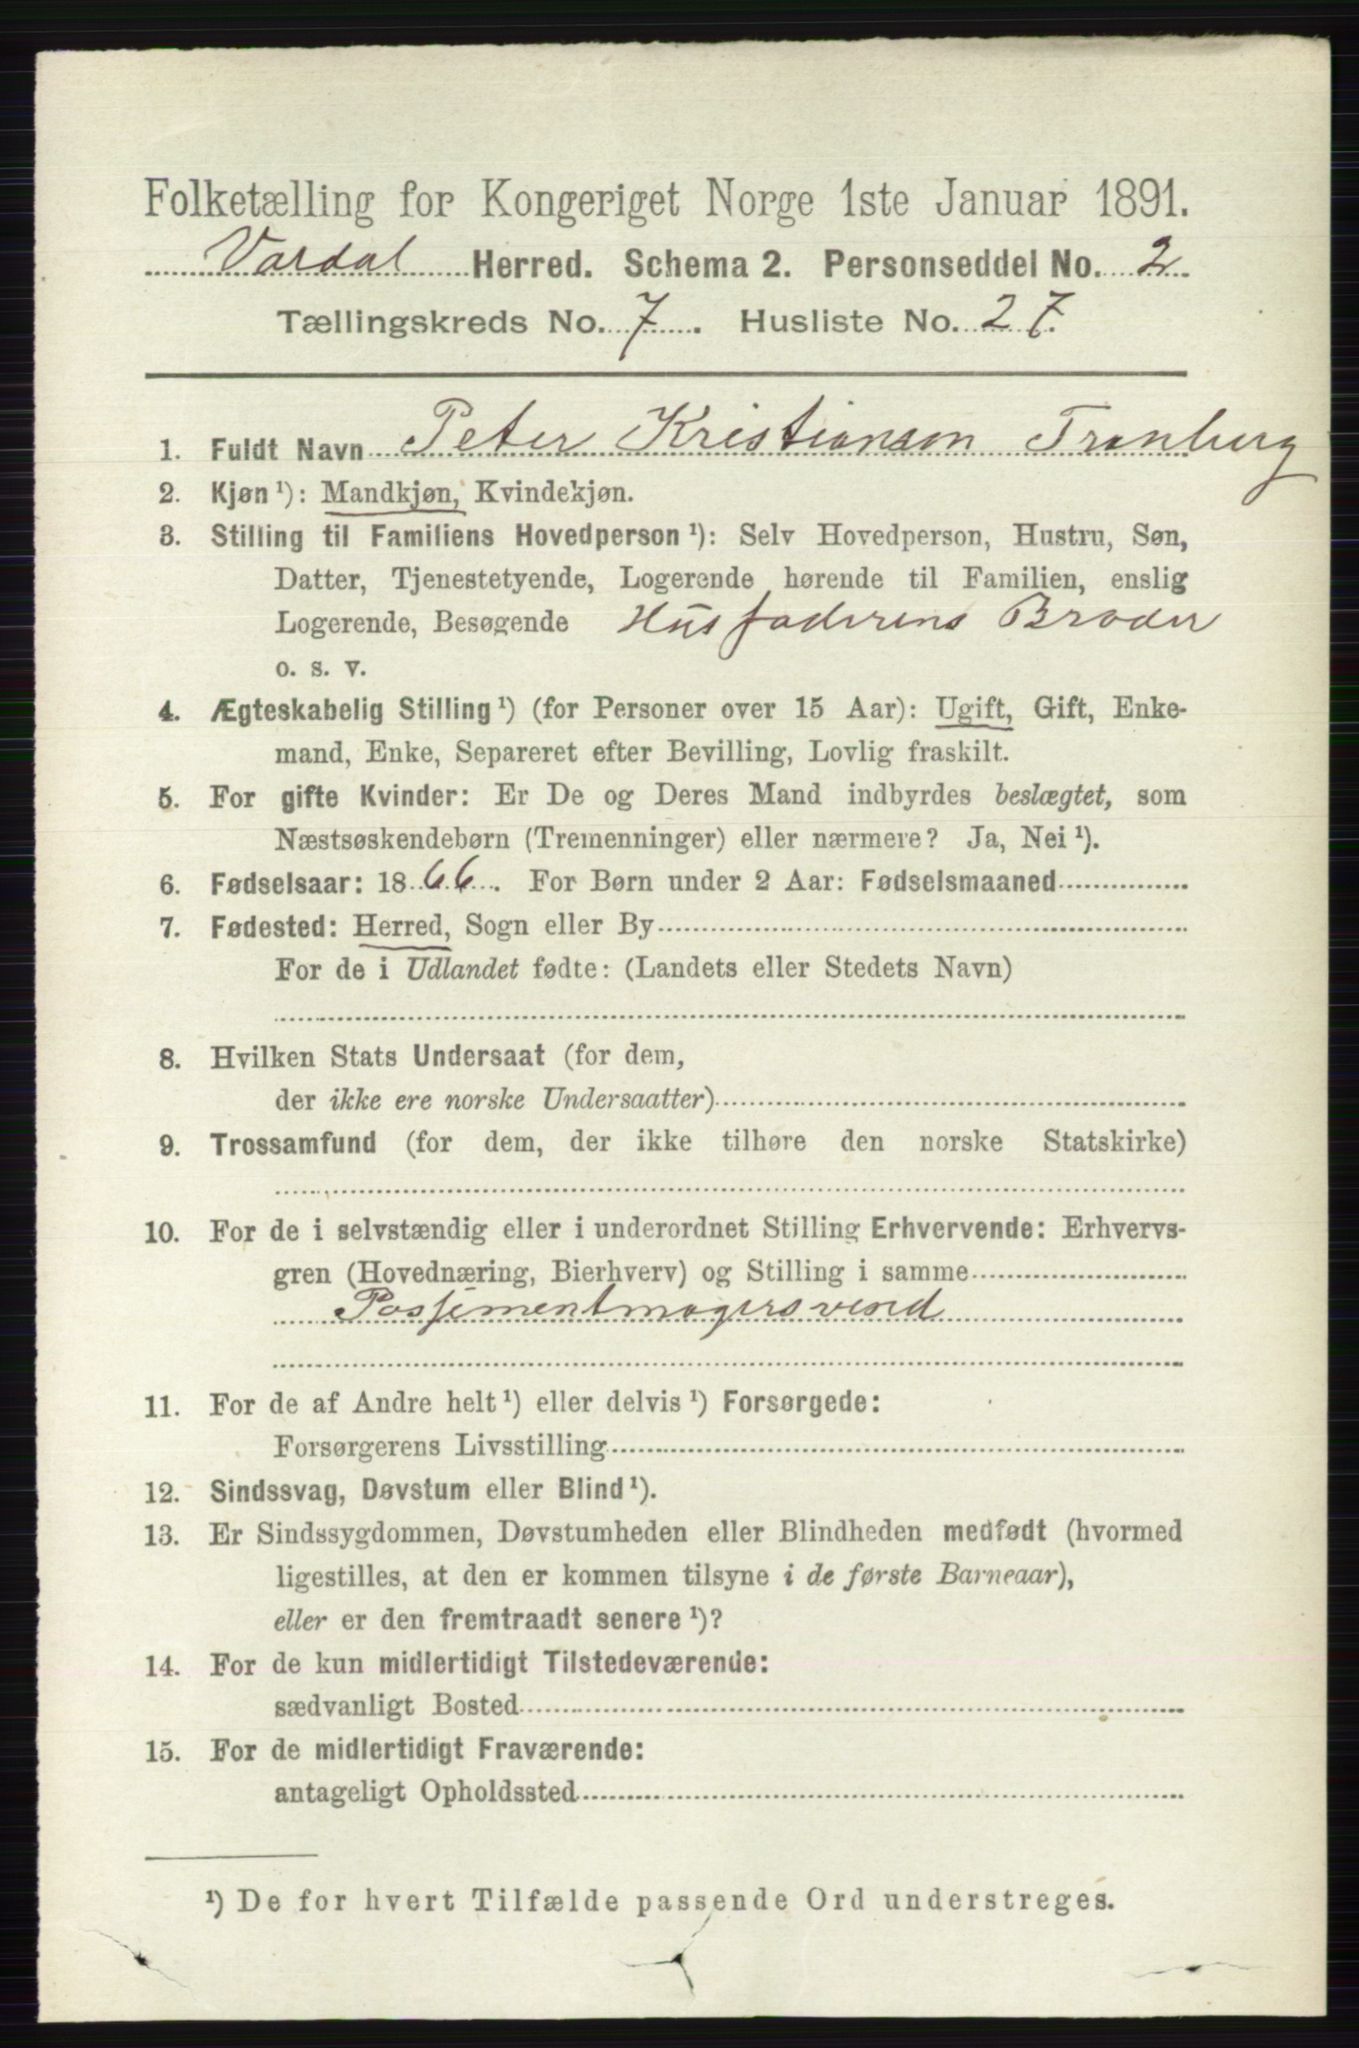 Folketælling for Kongeriget Norge 1ste Januar 1891.
Vardal Herred. Schema 2. Personseddel No. 2
Tællingskreds No. 7. Husliste No. 27.
1. Fuldt Navn Peter Kristiansen Tranberg
2. Kjøn ¹): Mandkjøn, Kvindekjøn.
3. Stilling til Familiens Hovedperson ¹): Selv Hovedperson, Hustru, Søn,
Datter, Tjenestetyende, Logerende hørende til Familien, enslig
Logerende, Besøgende Husfaderens Broder
o. s. v.
4. Ægteskabelig Stilling ¹) (for Personer over 15 Aar): Ugift, Gift, Enke-
mand, Enke, Separeret efter Bevilling, Lovlig fraskilt.
5. For gifte Kvinder: Er De og Deres Mand indbyrdes beslægtet, som
Næstsøskendebørn (Tremenninger) eller nærmere? Ja, Nei ¹).
6. Fødselsaar: 1866. For Børn under 2 Aar: Fødselsmaaned
7. Fødested: Herred, Sogn eller By
For de i Udlandet fødte: (Landets eller Stedets Navn)
8. Hvilken Stats Undersaat (for dem,
der ikke ere norske Undersaatter)
9. Trossamfund (for dem, der ikke tilhøre den norske Statskirke)
10. For de i selvstændig eller i underordnet Stilling Erhvervende: Erhvervs-
gren (Hovednæring, Bierhverv) og Stilling i samme
Possementmagersvend
11. For de af Andre helt ¹) eller delvis ¹) Forsørgede:
Forsørgerens Livsstilling
12. Sindssvag, Døvstum eller Blind ¹).
13. Er Sindssygdommen, Døvstumheden eller Blindheden medfødt (hvormed
ligestilles, at den er kommen tilsyne i de første Barneaar),
eller er den fremtraadt senere ¹)?
14. For de kun midlertidigt Tilstedeværende:
sædvanligt Bosted
15. For de midlertidigt Fraværende:
antageligt Opholdssted
¹) De for hvert Tilfælde passende Ord understreges.